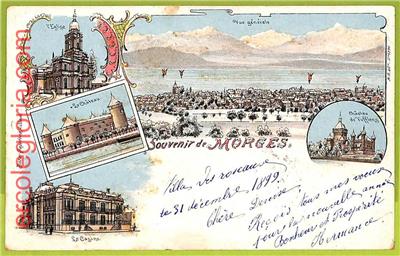 l'Eglise
Vue générale
Le Château
Château de Vufflens
Souvenir de MORGES.
Le Casino
Villa des roseaux
le 31 décembre 1899
Chère Denise,
Reçois tous mes vœux
pour la nouvelle année
Bonheur et Prospérité
Hermance
arcolegioria.com